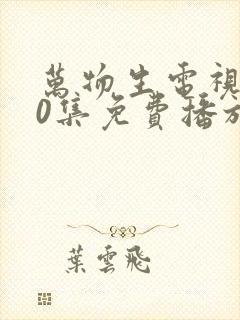 萬物生電視
0集免費播放
葉雲飛